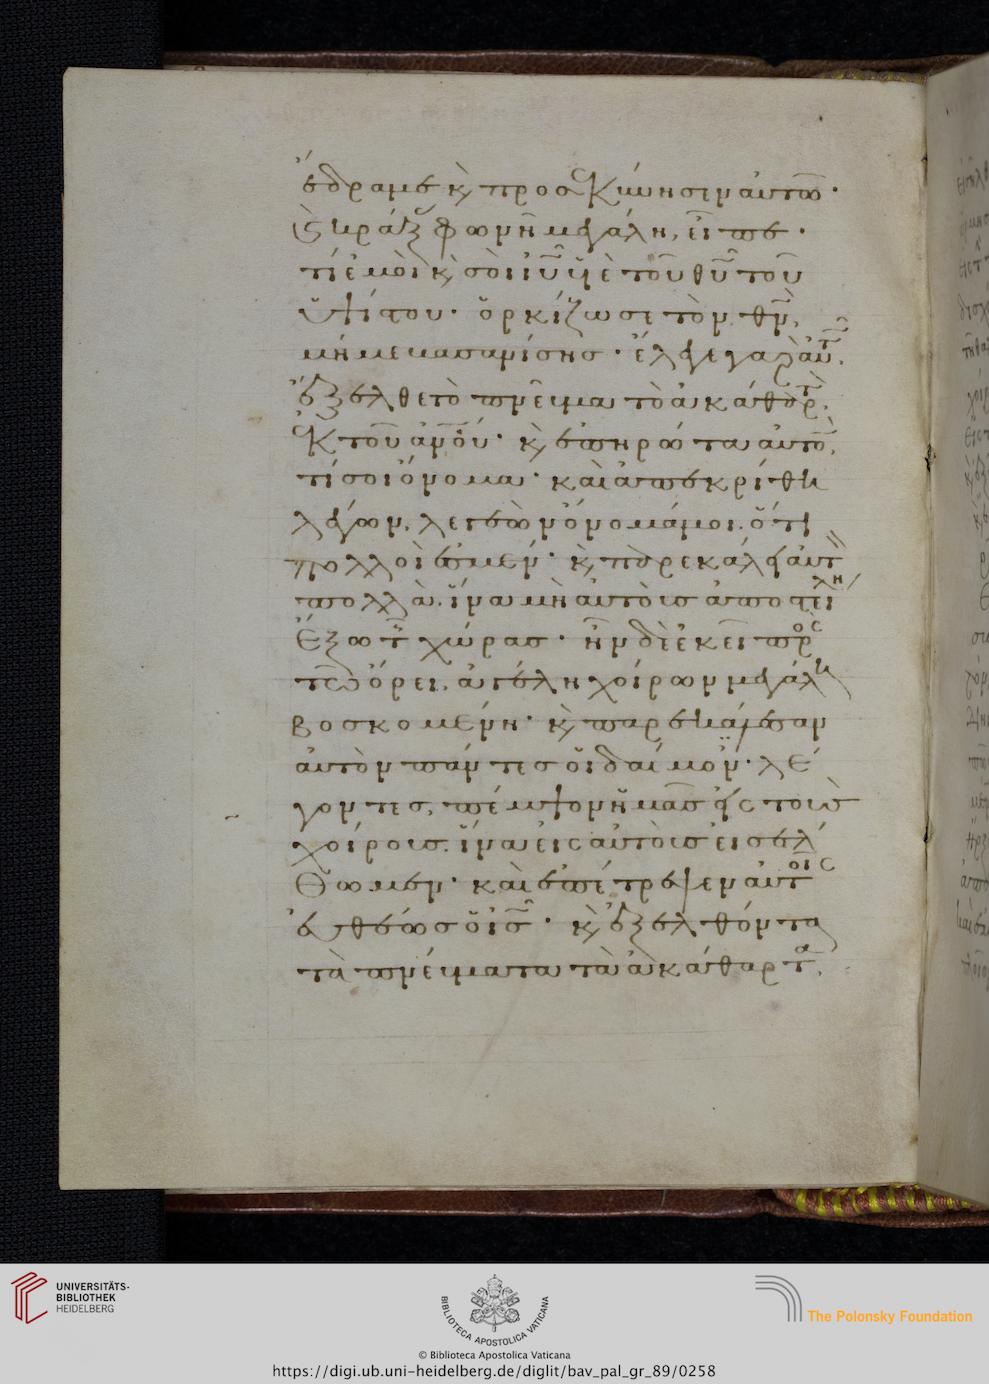 ἔδραμε κ̀ προσεκύνησεν αὐτῶ·
κ̀ κράξ φωνῆ μεγάλη, εἶπε·
τί ἐμοὶ κ̀ σοὶ ιῦ υἱὲ τοῦ θῦ τοῦ
ὑψίστου· ὁρκίζω σε τὸν θν,
μή με βασανίσης· ἔλεγε γὰρ αὐτ
ἔξελθε τὸ πνεῦμα τὸ ἀκάθαρτ
ἐκ τοῦ ἀνοῦ· κ̀ ἐπηρώτα αὐτὸ,
τί σοι ὄνομα· καὶ ἀπεκρίθη
λέγων, λεγεὼν ὄνομά μοι. ὅτι
πολλοί ἐσμεν· κ̀ παρεκάλει αὐτ
πολλὰ. ἵνα μὴ αὐτοὺς ἀποστείλη
ἔξω τ χώρας· ἦν δὲ ἐκεῖ πρὸς
τῶ ὄρει, ἀγέλη χοίρων μεγάλη
βοσκομένη· κ̀ παρεκάλεσαν
αὐτὸν πάντες οἱ δαίμον· λέ
γοντες, πέμψον ἡμᾶς εἰς τοὺς
χοίρους. ἵνα εἰς αὐτοὺς εἰσέλ
θωμεν· καὶ ἐπέτρεψεν αὐτοῖς
εὐθέως ὁ ις· κ̀ ἐξελθόντα
τὰ πνεύματα τὰ ἀκάθαρτα,
UNIVERSITÄTS-
BIBLIOTHEK
HEIDELBERG
BIBLIOTECA APOSTOLICA VATICANA
The Polonsky Foundation
© Biblioteca Apostolica Vaticana
https://digi.ub.uni-heidelberg.de/diglit/bav_pal_gr_89/0258